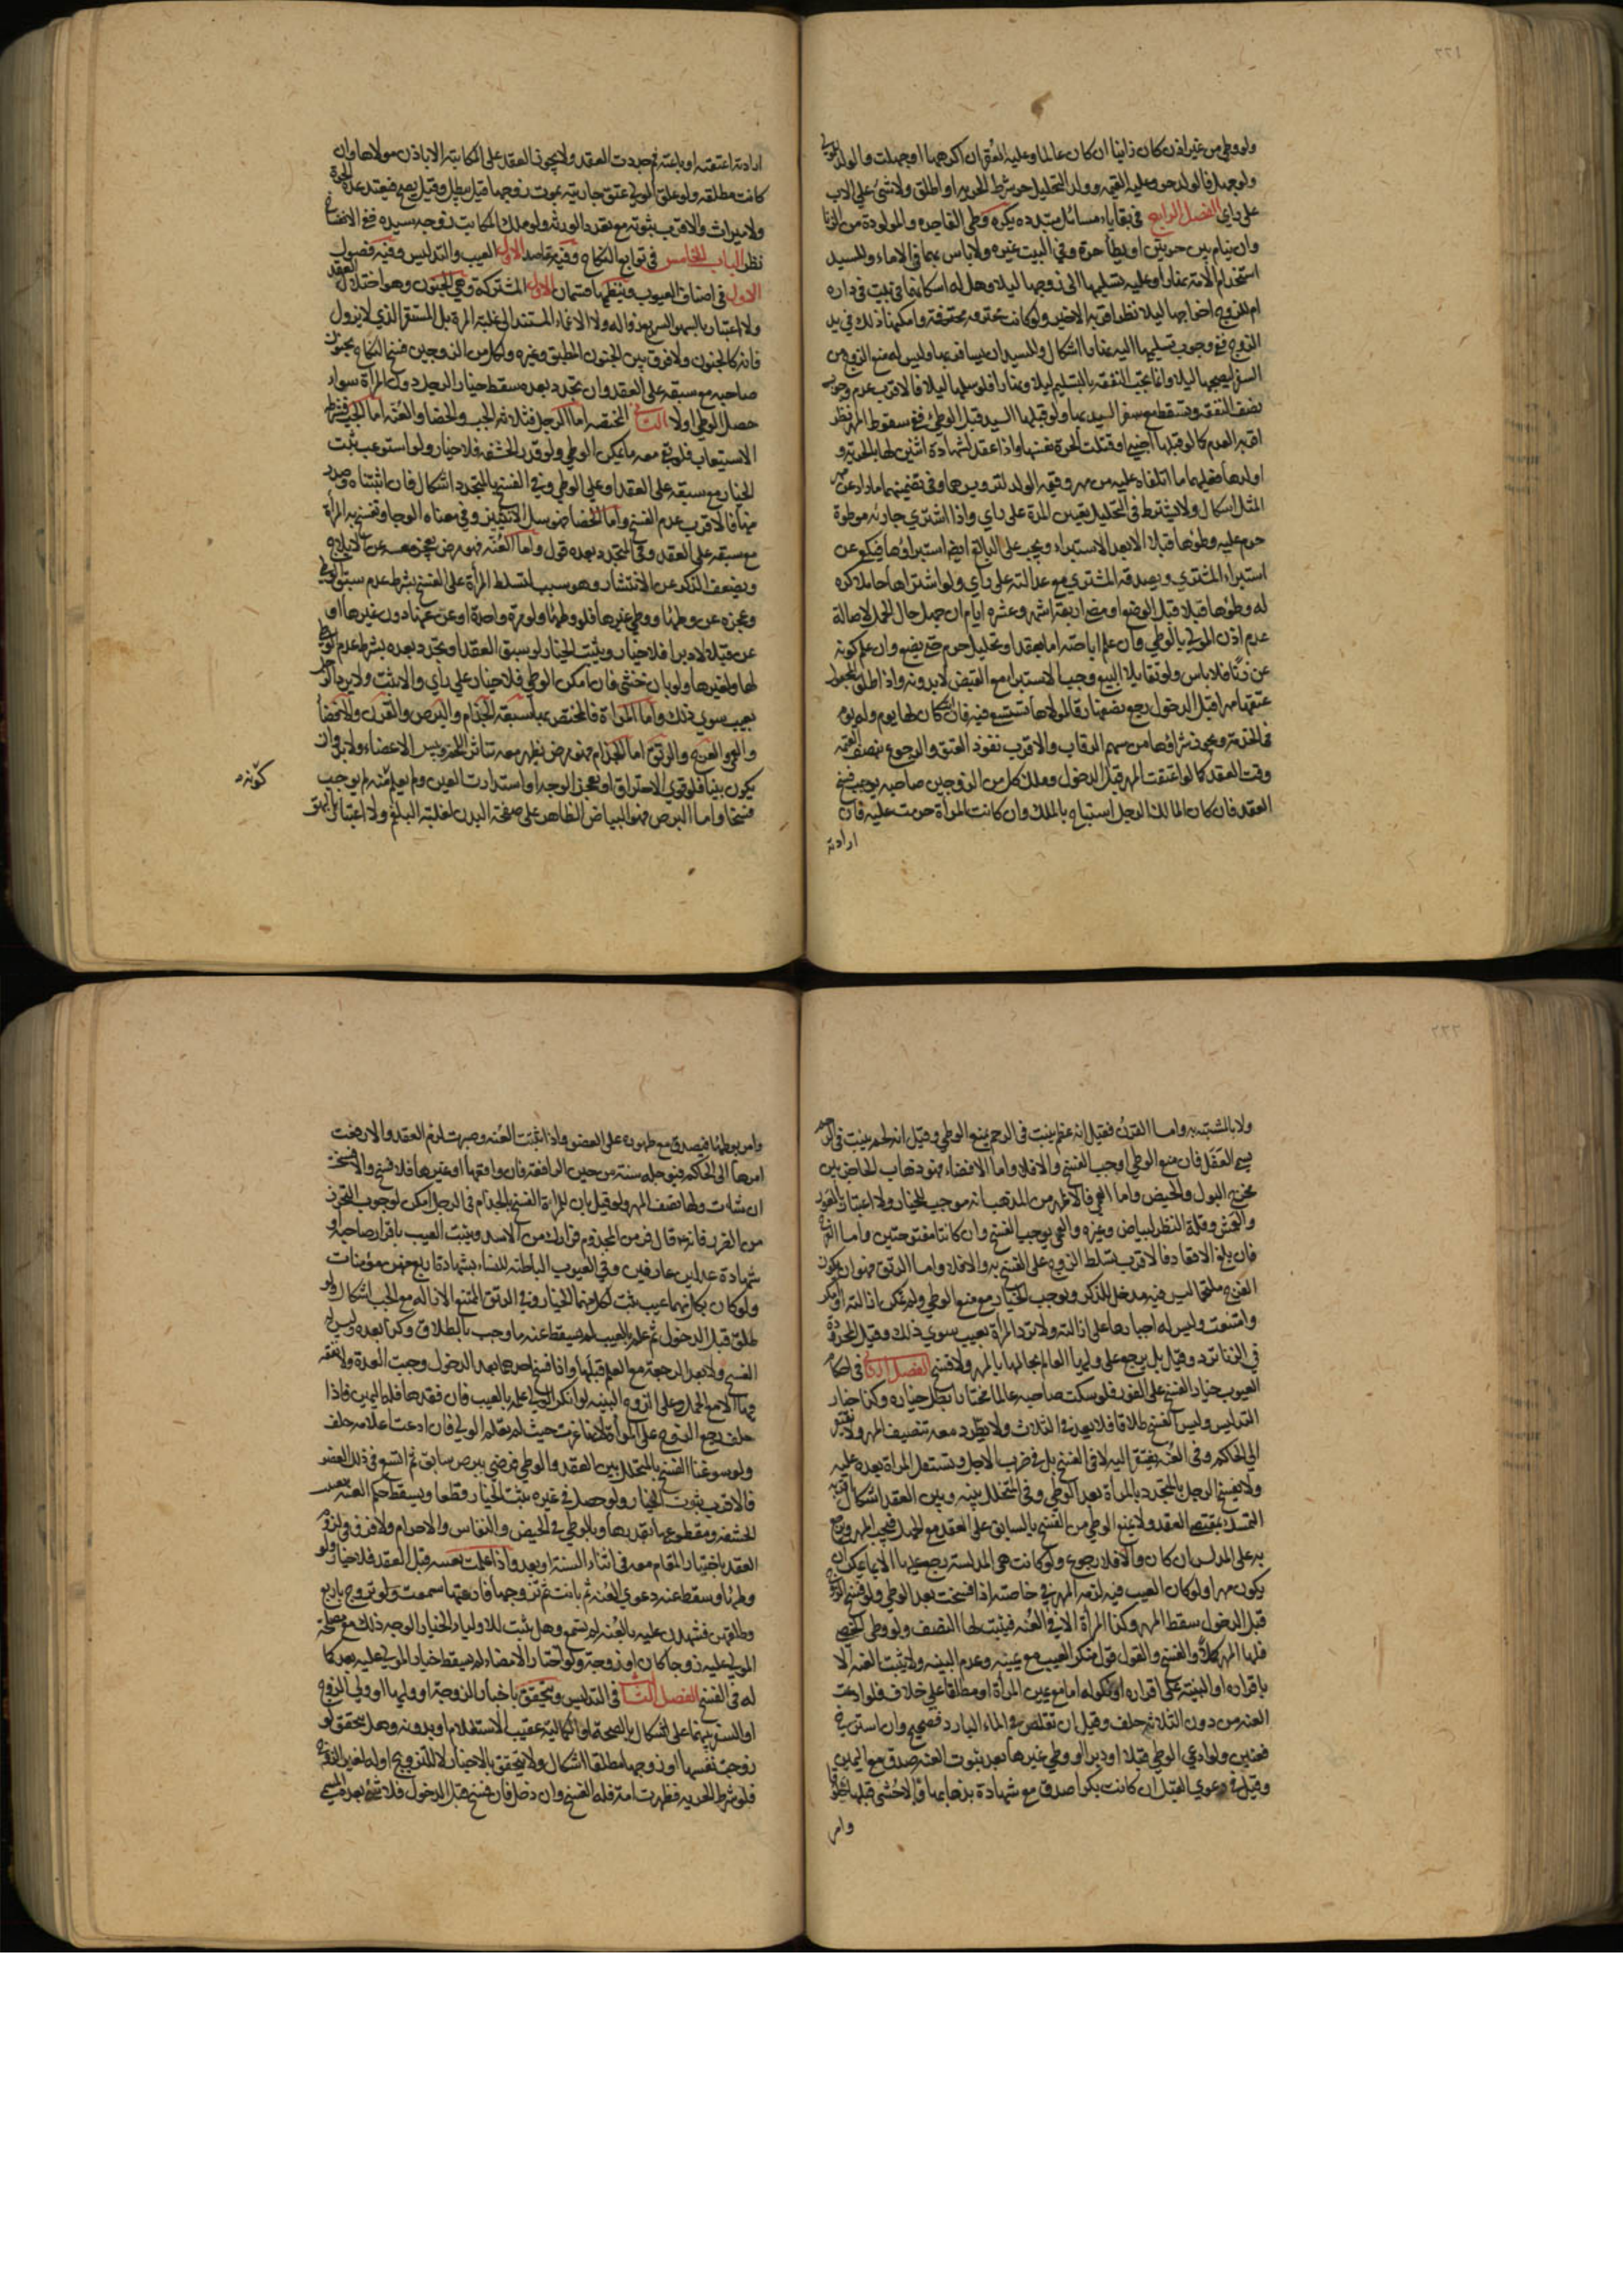 ٢٢١
ولو وطئ من غير اذن كان زانيا ان كان عالما وعليه العقر ان اكرهها او جهلت والولد لمولى
ولو جهل فالولد حر وعليه القيمه وولد التحليل حر شرط الحريه او اطلق ولا شئ على الاب
على راي الفصل الرابع في بقايا مسائل متبدده يكره وطى الفاجره والمولودة من الزنا
وان ينام بين حرتين او يطأ حرة وفي البيت غيره ولا باس بهما في الاماء وللسيد
استخدام الامة نهارا وعليه تسليمها الى زوجها ليلا وهل له اسكانهما في بيت في داره
ام للزوج اخراجها ليلا نظر اقربه الاخير ولو كانت محترفة وامكنها ذلك في يد
الزوج ففي وجوب تسليمها اليه نهارا اشكال وللسيد ان يسافر بها وليس له منع الزوج من
السفر ليصحبها ليلا وانما تجب النفقه بالتسليم ليلا ونهارا فلو سلمها ليلا فالاقرب عدم وجوب
نصف النفقه وتسقط مع سفر السيد بها ولو قتلها السيد قبل الوطئ ففي سقوط المهر نظر
اقربه العدم كما لو قتلها اجنبي او قتلت الحرة نفسها واذا عقد لشهادة اثنين لها بالحرية و
اولدها فعليهما ما اتلفاه عليه من مهر وقيمة الولد لتزويرهما وفي تضمينهما ما زاد عن مهر
المثل اشكال ولا يشترط في التحليل تعيين المدة على راي واذا اشترى جارية موطوة
حرم عليه وطؤها قبلا الا بعد الاستبراء ويجب على البايع ايضا استبراؤها فيكفي عن
استبراء المشتري ويصدقه المشتري مع عدالته على راي ولو اشتراها حاملا كره
له وطؤها قبلا قبل الوضع او مضي اربعة اشهر وعشره ايام ان جهل حال الحمل لاصالة
عدم اذن المولى بالوطي وان علم اباحته اما بعقد او تحليل حرم حتى تضع وان علم كونه
عن زنا فلا باس ولو تقايلا البيع وجب الاستبراء مع القبض لا بدونه واذا طلق المجعول
عتقها مهرا قبل الدخول رجع نصفها رقا لمولاها تستسعى فيه فان كان لها يوم وله يوم
في الخدمة ويجوز شراؤها من سهم الرقاب والاقرب نفوذ العتق والرجوع بنصف القيمه
وقت العقد كما لو اعتقت المهر قبل الدخول وملك كل من الزوجين صاحبه يوجب فسخ
العقد فان كان المالك الرجل استباح بالملك وان كانت المرأة حرمت عليه فان
ارادته
ارادته اعتقته او باعته ثم جددت العقد ولا يجوز العقد على المكاتبة الا باذن مولاها وان
كانت مطلقه ولو علق المولى عتق جاريته بموت زوجها قيل يبطل وقيل يصح فتعتد عدة الحرة
ولا ميراث والاقرب ثبوته مع تعدد الورثه ولو ملك المكاتب زوجه سيده ففي الانفساخ
نظر الباب الخامس في توابع النكاح وفيه مقاصد الاول العيب والتدليس وفيه فصول
الاول في اصناف العيوب وينظمها قسمان الاول المشتركة وهي الجنون وهو اختلال العقل
ولا اعتبار بالسهو السريع زواله ولا الاغماء المستند الى غلبة المرة بل المستقر الذي لا يزول
فانه كالجنون ولا فرق بين الجنون المطبق وغيره ولكل من الزوجين فسخ النكاح بجنون
صاحبه مع سبقه على العقد وان تجدد بعده سقط خيار الرجل دون المرأة سواء
حصل الوطي اولا الثاني المختصه اما الرجل فثلاثه الجب والخصا والعنه اما الجب فشرطه
الاستيعاب فلو بقى معه ما يمكن الوطي ولو قدر الحشفه فلا خيار ولو استوعب ثبت
الخيار مع سبقه على العقد او على الوطي وفي الفسخ بالمتجدد اشكال فان اثبتناه وصدر
منها فالاقرب عدم الفسخ واما الخصا فهو سل الانثيين وفي معناه الوجا وتفسخ به المرأة
مع سبقه على العقد وفي المتجدد بعده قول واما العنه فهو مرض يعجز معه عن الايلاج
ويضعف الذكر عن الانتشار وهو سبب لتسلط المرأة على الفسخ بشرط عدم سبق الوطي
وعجزه عن وطئها ووطي غيرها فلو وطئها ولو مرة واحدة او عن عنها دون غيرها او
عن قبلا لا دبرا فلا خيار ويثبت الخيار لو سبق العقد او تجدد بعده بشرط عدم الوطي
لها ولغيرها ولو بان خنثى فان امكن الوطي فلا خيار على راي والا ثبت ولا يرد الرجل
بعيب سوى ذلك واما المراة فالمختص بها سبعة الجذام والبرص والقرن والافضا
والعمى والعرج والرتق اما الجذام فهو مرض يظهر معه تناثر اللحم ويبس الاعضاء ولا بد وان
يكون بينا فلو قوي الاحتراق او تعجر الوجه او استدارت العين ولم يعلم كونه منه لم يوجب
فسخا واما البرص فهو البياض الظاهر على صفحة البدن لغلبة البلغم ولا اعتبار بالبهق
كونه
٢٢٢
ولا بالمشتبه به واما القرن فقيل انه عظم ينبت في الرحم يمنع الوطي وقيل انه لحم ينبت في الرحم
يسمى العفل فان منع الوطي اوجب الفسخ والا فلا واما الافضاء فهو ذهاب الحاجز بين
مخرج البول والحيض واما العمى فالاظهر من المذهب انه موجب للخيار ولا اعتبار بالعور
والعمش وقلة النظر لبياض وغيره والعمى يوجب الفسخ وان كانتا مفتوحتين واما العرج
فان بلغ الاقعاد فالاقرب تسلط الزوج على الفسخ به والا فلا واما الرتق فهو ان يكون
الفرج ملتحما ليس فيه مدخل للذكر ويوجب الخيار مع منع الوطي ولم يمكن ازالته او امكن
وامتنعت وليس له اجبارها على ازالته ولا ترد المرأة بعيب سوى ذلك وقيل المحدودة
في الزنا ترد وقيل بل يرجع على وليها العالم بحالها بالمهر ولا فسخ الفصل الثاني في احكام
العيوب خيار الفسخ على الفور فلو سكت صاحبه عالما مختارا بطل خياره وكذا خيار
التدليس وليس الفسخ طلاقا فلا يعد في الثلاث ولا يطرد معه تنصيف المهر ولا يفتقر
الى الحاكم وفي العنه يفتقر اليه لا في الفسخ بل في ضرب الاجل وتستقل المراة بعده عليه
ولا يفسخ الرجل بالمتجدد بالمراة بعد الوطي وفي المتخلل بينه وبين العقد اشكال اقربه
التمسك بمقتضى العقد ولا يمنع الوطي من الفسخ بالسابق على العقد مع الجهل فيجب المهر ويرجع
به على المدلس ان كان والا فلا رجوع ولو كانت هي المدلسة رجع عليها الا بما يمكن ان
يكون مهرا ولو كان العيب فيه لزمه المهر في خاصته اذا فسخت بعد الوطي ولو فسخ الزوج
قبل الدخول سقط المهر وكذا المرأة الا في العنه فيثبت لها النصف ولو وطى الخصي
فلها المهر كملا والفسخ والقول قول منكر العيب مع يمينه وعدم البينه ولا يثبت العنه الا
باقراره او البينة على اقراره او نكوله اما مع يمين المرأة او مطلقا على خلاف فلو ادعت
العنه من دون الثلاثه حلف وقيل ان تقلص في الماء البارد فصحيح وان استرخى
فعنين ولو ادعى الوطي قبلا او دبرا او وطى غيرها بعد ثبوت العنه صدق مع اليمين
وقيل في دعوى القبل ان كانت بكرا صدق مع شهادة بذهابها والا حشى قبلها خلوقا
وامر
وامر بوطئها فيصدق مع ظهوره على العضو واذا ثبتت العنه وصبرت لزم العقد والا رفعت
امرها الى الحاكم فيؤجله سنة من حين المرافعه فان واقعها او غيرها فلا فسخ والا فسخت
ان شات ولها نصف المهر ولو قيل بان للمرأة الفسخ بالجذام في الرجل امكن لوجوب التحرز
من الضرر فانه قال فر من المجذوم فرارك من الاسد ويثبت العيب باقرار صاحبه او
شهادة عدلين عارفين وفي العيوب الباطنه للنساء بشهادة اربع منهن مؤمنات
ولو كان بكل منهما عيب ثبت لكل منهما الخيار وفي الرتق الممتنع الازاله مع الجب اشكال ولو
طلق قبل الدخول ثم علم بالعيب لم يسقط عنه ما وجب بالطلاق وكذا بعده وليس له
الفسخ ولا بعد الرجعة مع العلم قبلها واذا فسخ احدهما بعد الدخول وجبت العدة ولا نفقه
فيها الا مع الحمل وعلى الزوج البينه لو انكر الولي علمه بالعيب فان فقدها فله اليمين فاذا
حلف رجع الزوج على المرأة لانها غرت حيث لم تعلم الولي فان ادعت اعلامه حلف
ولو سوغنا الفسخ بالمتخلل بين العقد والوطي فرضي ببرص سابق ثم اتسع في ذلك العضو
فالاقرب ثبوت الخيار ولو حصل في غيره ثبت الخيار قطعا ويسقط حكم العنه بتغييب
الحشفه ومقطوعها بقدرها وبالوطي في الحيض والنفاس والاحرام ولا فرق في لزوم
العقد باختيار المقام معه في اثناء السنة او بعد واذا علمت بعننه قبل العقد فلا خيار ولو
وطئها وسقط عنه دعوى العنه ثم بانت ثم تزوجها فادعتها سمعت ولو تزوج باربع
وطلقهن فشهدن عليه بالعنه لم تسمع وهل يثبت للاولياء الخيار الوجه ذلك مع مصلحة
المولى عليه زوجا كان او زوجة ولو اختار الامضاء لم يسقط خيار المولى عليه بعد كما
له في الفسخ الفصل الثالث في التدليس ويتحقق باخبار الزوجة او وليها او ولي الزوج
او السفير بينهما على اشكال بالصحة او الكمالية عقيب الاستعلام او بدونه وهل يتحقق لو
زوجت نفسها او زوجها مطلقا اشكال ولا يتحقق بالاخبار لا للتزويج او له لغير الزوج
فلو شرط الحريه فظهرت امة فله الفسخ وان دخل فان فسخ قبل الدخول فلا شئ وبعده المسمى